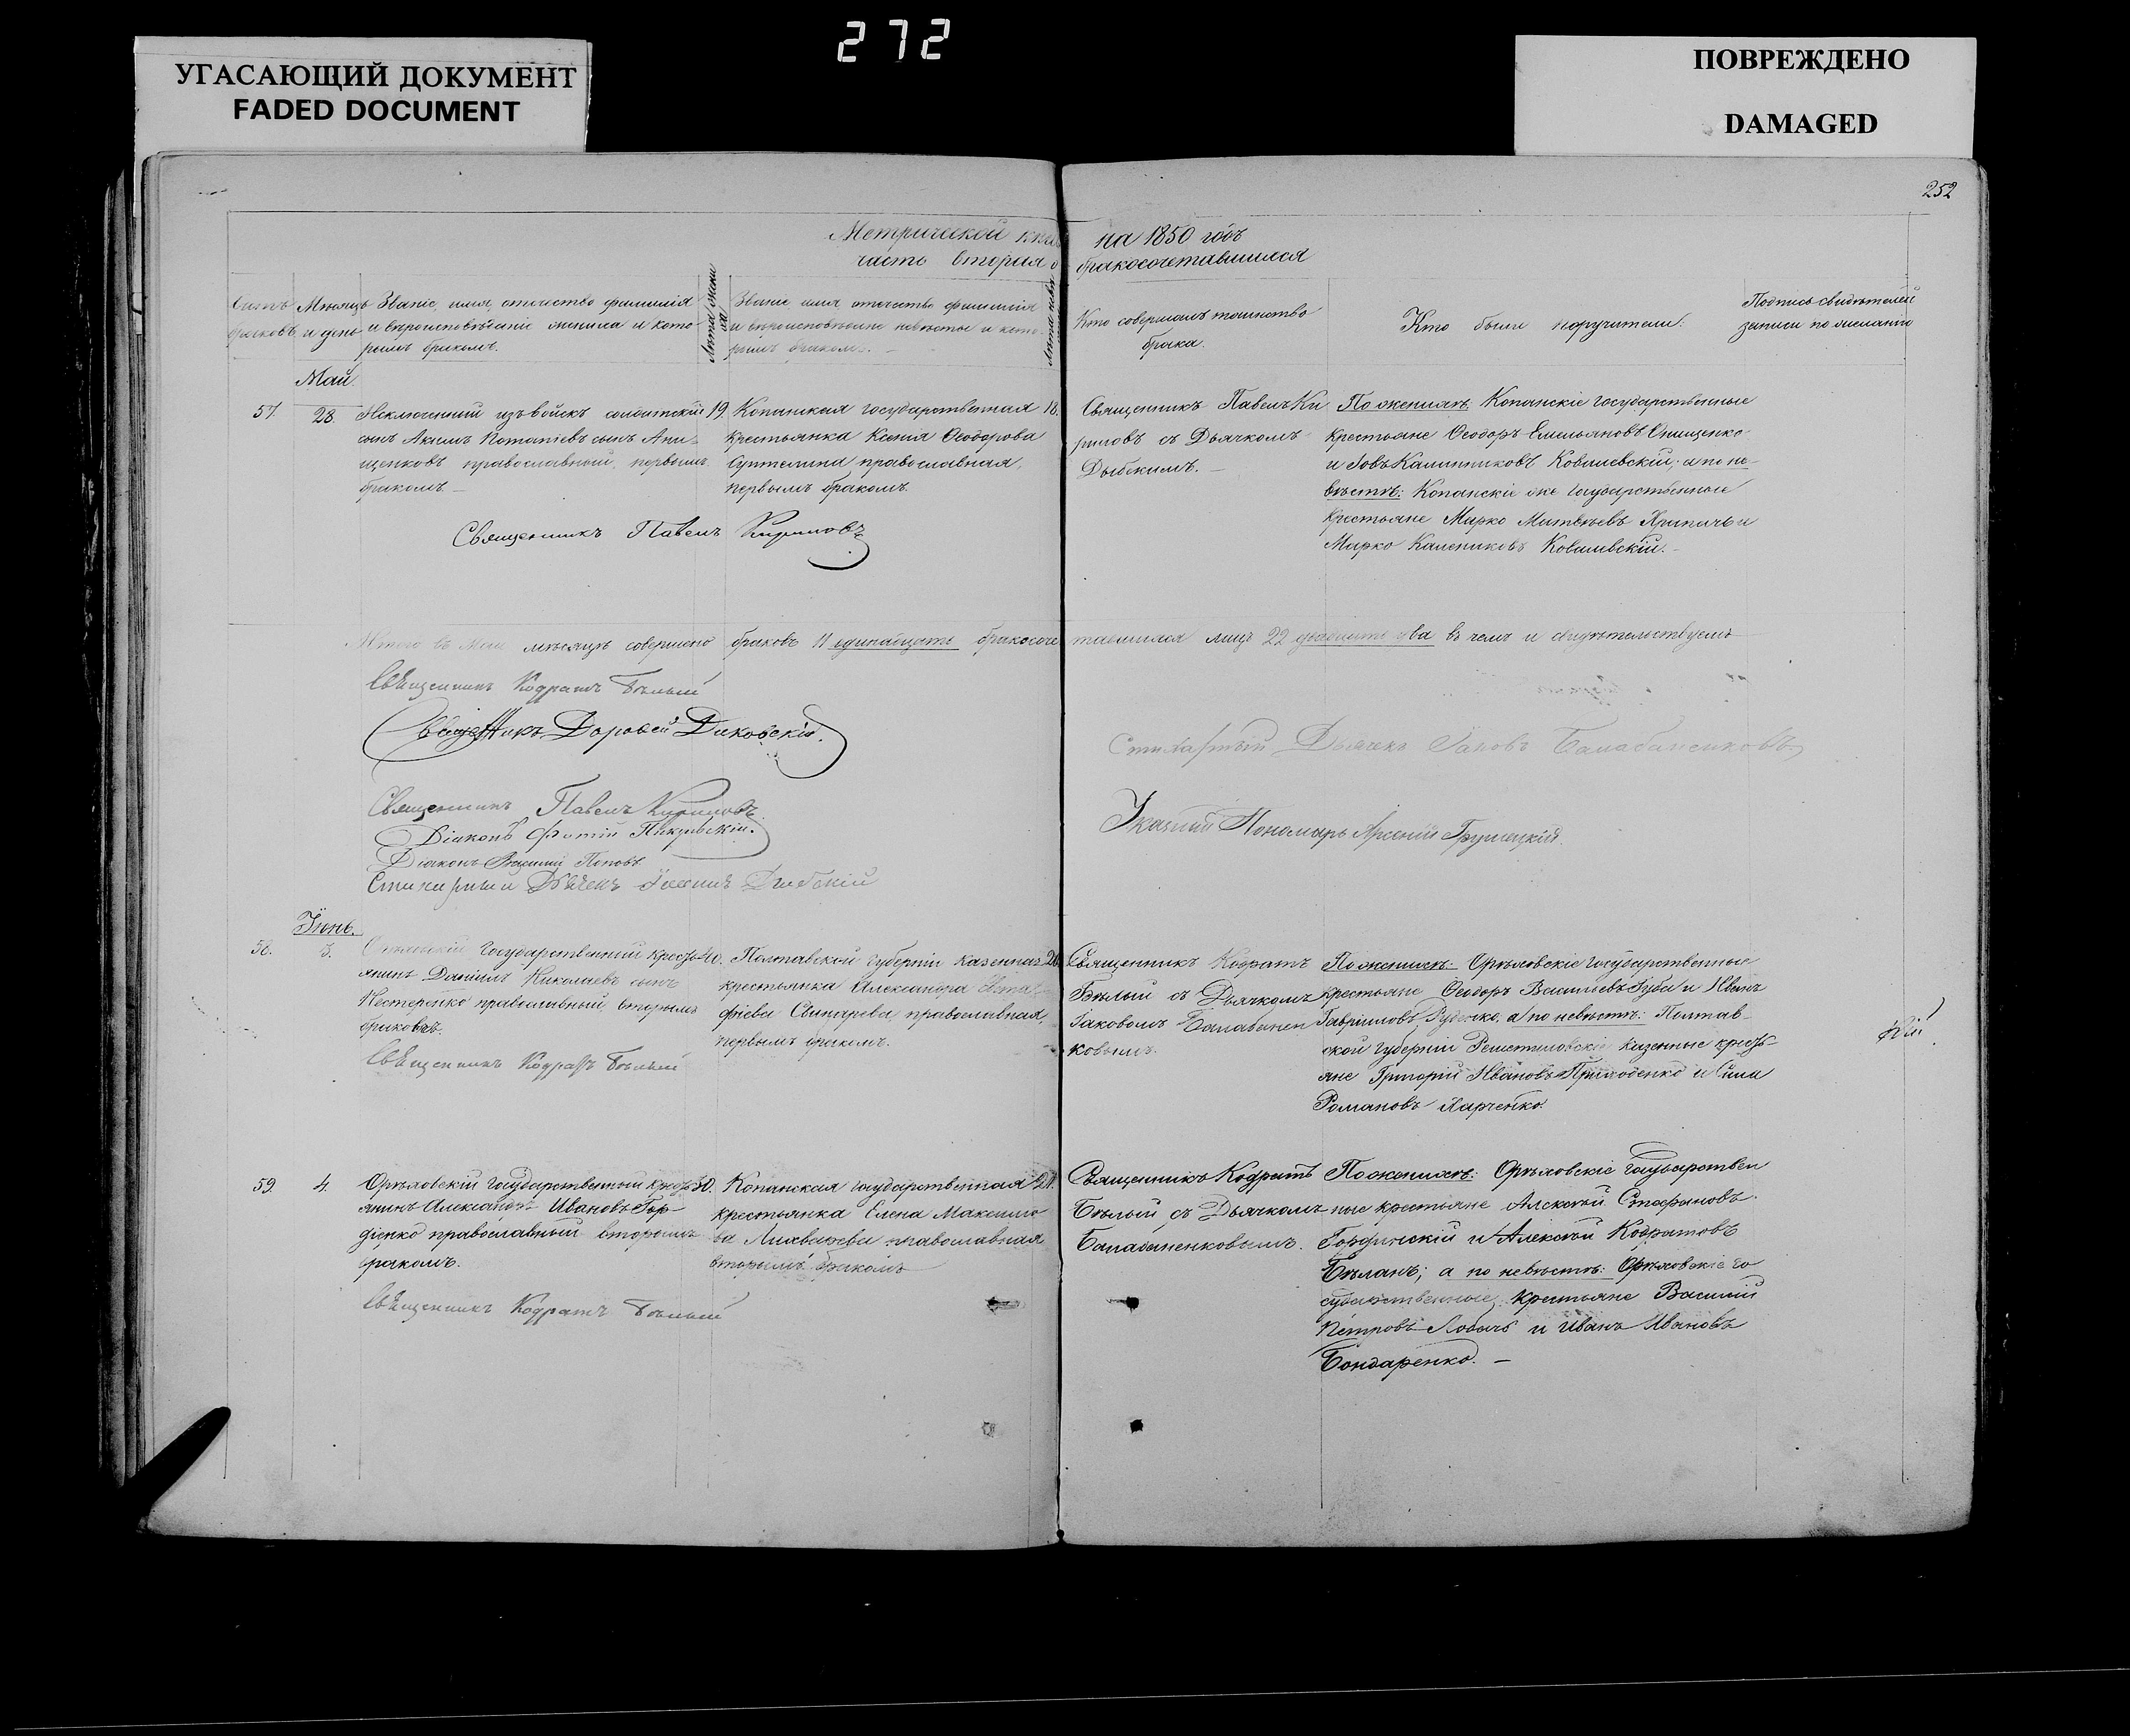 272
УГАСАЮЩИЙ ДОКУМЕНТ
FADED DOCUMENT
ПОВРЕЖДЕНО
DAMAGED
252
Метрической кни на 1850 годъ
часть вторая о бракосочетавшихся
Счетъ браковъ
Мѣсяцъ и день
Званіе, имя, отчество фамилія
и вѣроисповѣданіе жениха и кото
рымъ бракомъ.
Лѣта жениха
Званіе имя отчество фамилія
и вѣроисповѣданіе невѣсты и кото-
рымъ бракомъ. –
Лѣта невѣ
Кто совершалъ таинство
брака.
Кто были поручители:
Подпись свидѣтелей
записи по желанію
Май.
57. 28.
Исключенный изъ войскъ солдатскій
сынъ Акимъ Потапіевъ сынъ Они-
щенковъ православный, первымъ
бракомъ. –
19.
Копанская государственная
крестьянка Ксенія Ѳеодорова
православная,
первымъ бракомъ.
18.
Священникъ Павелъ Ки
риловъ съ Дьячкомъ
Дыбскимъ. –
По женихѣ: Копанскіе государственные
крестьяне Ѳеодоръ Емельяновъ Онищенко
и Іовъ Калинниковъ Ковалевскій; а по не-
вѣстѣ: Копанскіе же государственные
крестьяне Марко Матвѣевъ и
Марко Калениковъ Ковалевскій. –
Священникъ Павелъ Кириловъ
Итого въ Маѣ мѣсяцѣ совершено браковъ 11 одинадцать бракосоче тавшихся лицъ 22 двадцать два въ чемъ и свидѣтельствуемъ
Священникъ Кодратъ Бѣлый
Священникъ Доровей Диковскій.
Стихарный Дьячекъ Іаковъ Балабаненковъ
Священникъ Павелъ Кириловъ
Діаконъ Фотій
Указный Пономарь Арсеній
Діаконъ Василій Поповъ
Стихарный Дьячекъ Дыбскій
Іюнь.
58. 3.
Орѣховскій государственный кресть
янинъ Даніилъ Николаевъ сынъ
Нестеренко православный, вторымъ
бракомъ.
40.
Полтавской губерніи казенная
крестьянка Александра
фіева Свинарева православная,
первымъ бракомъ.
Священникъ Кодратъ
Бѣлый съ Дьячкомъ
Іаковомъ Балабанен
ковымъ.
По женихѣ: Орѣховскіе государственные
крестьяне Ѳеодоръ Василіевъ Губа и Иванъ
Гавриловъ Руденко, а по невѣстѣ: Полтав-
ской губерніи Решетиловскіе казенные кресть-
яне Григорій Ивановъ Приходенко и Сила
Романовъ Харченко.
Священникъ Кодратъ Бѣлый
59. 4.
Орѣховскій государственный кресть
янинъ Александръ Ивановъ Гор-
діенко православный вторымъ
бракомъ.
30.
Копанская государственная
крестьянка Елена Максимо
ва православная
вторымъ бракомъ
Священникъ Кодратъ
Бѣлый съ Дьячкомъ
Балабаненковымъ.
По женихѣ: Орѣховскіе государствен
ные крестьяне Алексѣй Стефановъ
и Алексѣй Кодратовъ
Бѣланъ; а по невѣстѣ: Орѣховскіе го
сударственные крестьяне Василій
Петровъ Лобачъ и Иванъ Ивановъ
Бондаренко. –
Священникъ Кодратъ Бѣлый